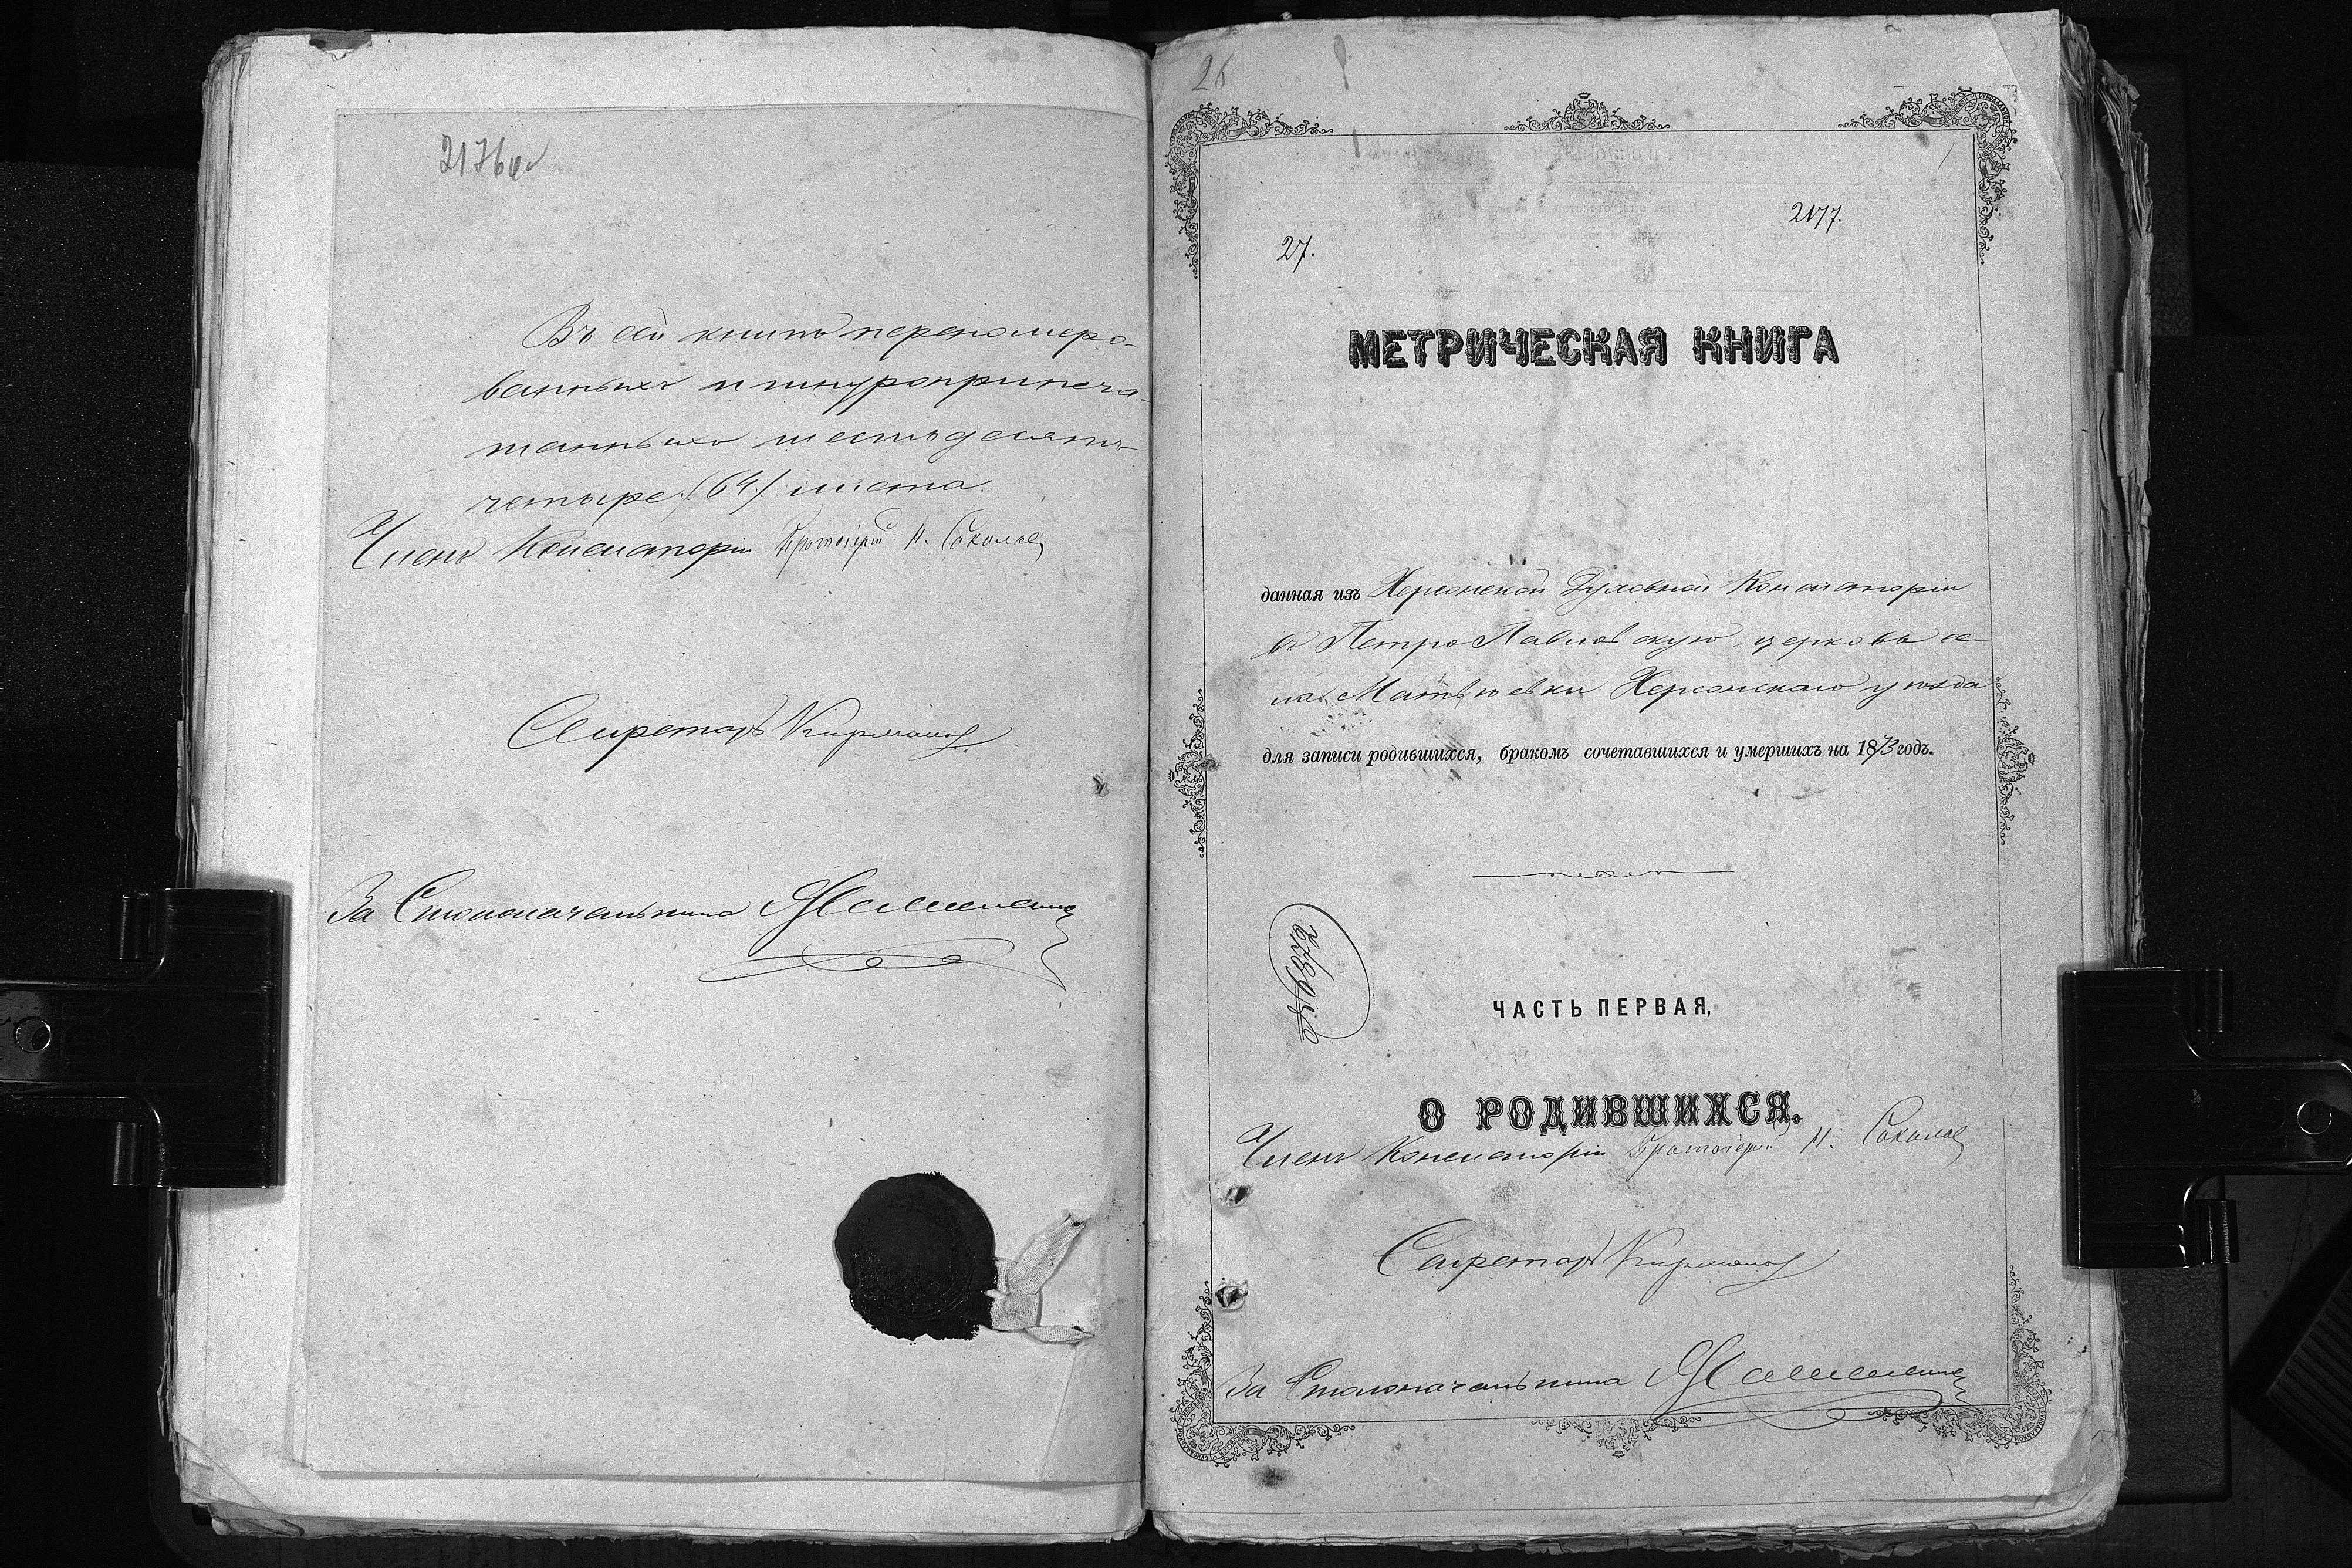 2176 об
Въ сей книгѣ перенумеро-
ванныхъ и шнуроприпеча-
танныхъ шестьдесятъ
четыре /64/ листа.
Членъ Консисторіи Протоіерей Н. Соколов
Секретарь
За Столоначальника
26
2177.
27.
МЕТРИЧЕСКАЯ КНИГА
данная изъ Херсонской Духовной Консисторіи
въ Петро Павловскую церковь се
ла Матвѣевки Херсонскаго уѣзда
для записи родившихся, бракомъ сочетавшихся и умершихъ на 1873 годъ.
ЧАСТЬ ПЕРВАЯ,
О РОДИВШИХСЯ.
Членъ Консисторіи Протоіерей Н. Соколов
Секретарь
За Столоначальника